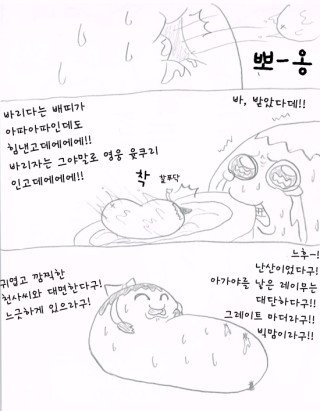 뽀ㅡ옹
바, 받았다데!!
바리다는 배띠가
아파아파인데도
힘낸고데에에에!!
바리자는 그야말로 영웅 윳쿠리
인고데에에에!!
착
찰푸닥
느후ㅡ!
난산이었다구!
아가야를 낳은 레이무는
대단하다구!!
그레이트 마더라구!!
빅맘이라구!!
귀엽고 깜찍한
천사씨와 대면한다구!
느긋하게 있으라구!